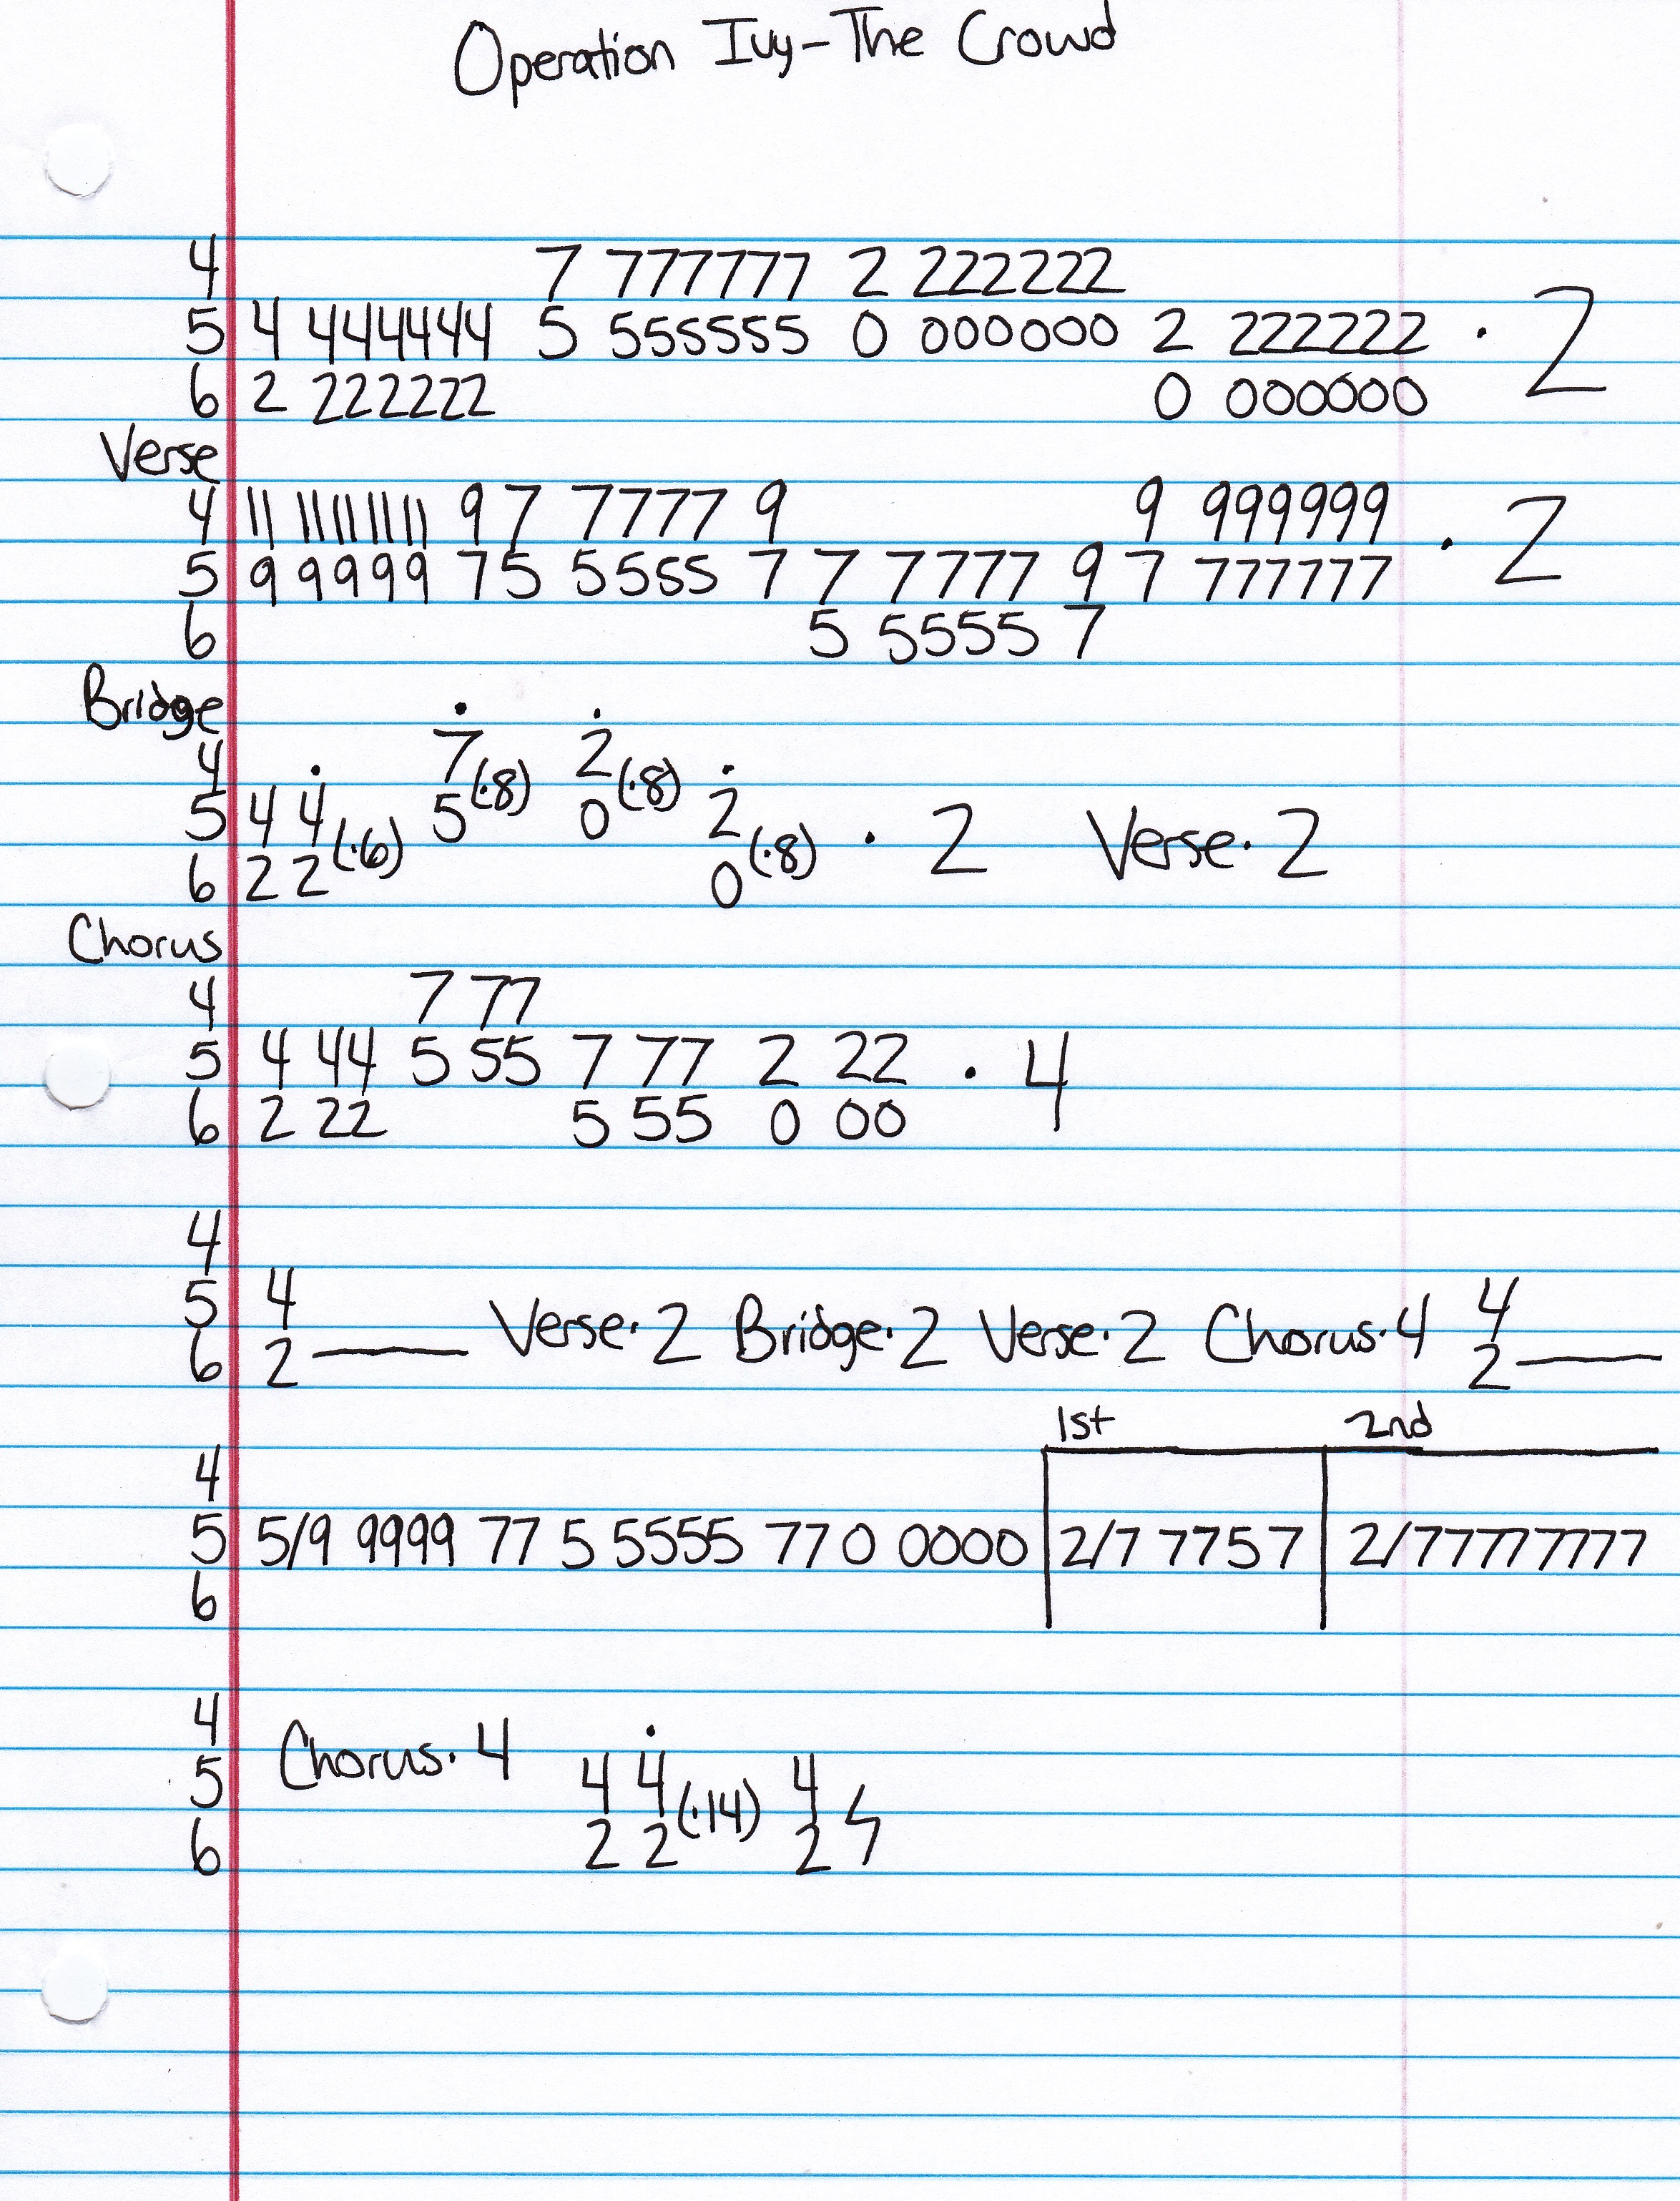 Operation Ivy-The Crowd
4 7 777777 2 222222
5 4 444444 5 555555 0 000000 2 222222 · 2
6 2 222222 0 000000
Verse
4 11 11111111 9 7 7777 9 9 999999
5 9 9999 7 5 5555 7 7 7777 9 7 777777 · 2
6 5 5555 7
Bridge
4 7 (·8) 2 (·8)
5 4 4 5 0 2 · 2 Verse· 2
6 2 2 (·6) 0 (·8)
Chorus
4 7 77
5 4 44 5 55 7 77 2 22 · 4
6 2 22 5 55 0 00
4
5 4 Verse· 2 Bridge· 2 Verse· 2 Chorus· 4 4
6 2 ⸺ 2 ⸺
1st 2nd
4
5 5/9 9999 77 5 5555 77 0 0000 2/7 7757 2/7777777
6
4
5 Chorus· 4 4 4 (·14) 4
6 2 2 2